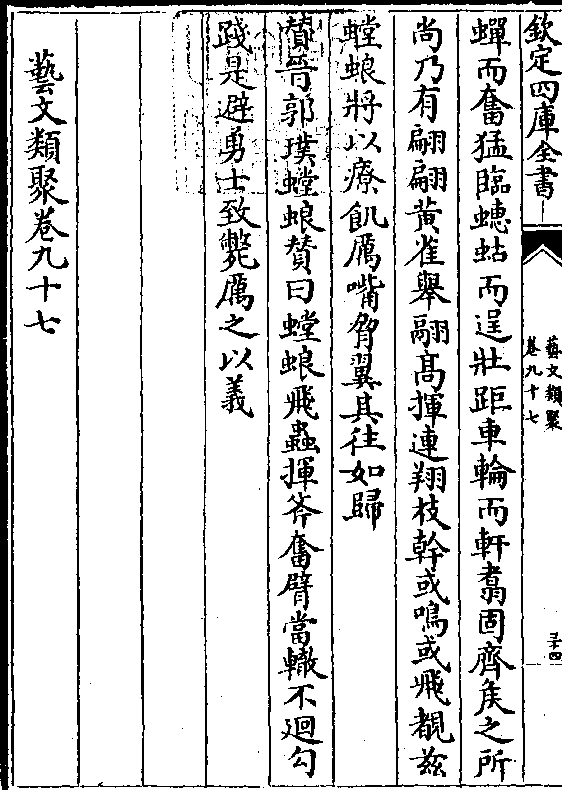 欽定四庫全書
藝文類聚
卷九十七
三十四
蟬而奮猛臨蟪蛄而逞壯距車輪而軒翥固齊矦之所
尚乃有翩翩黃雀舉翮高揮連翔枝幹或鳴或飛覩兹
螳蜋將以療飢厲嘴胷翼其往如歸
贊晉郭璞螳蜋贊曰螳蜋飛蟲揮斧奮臂當轍不迴勾
踐是避勇士致斃厲之以義
藝文類聚卷九十七